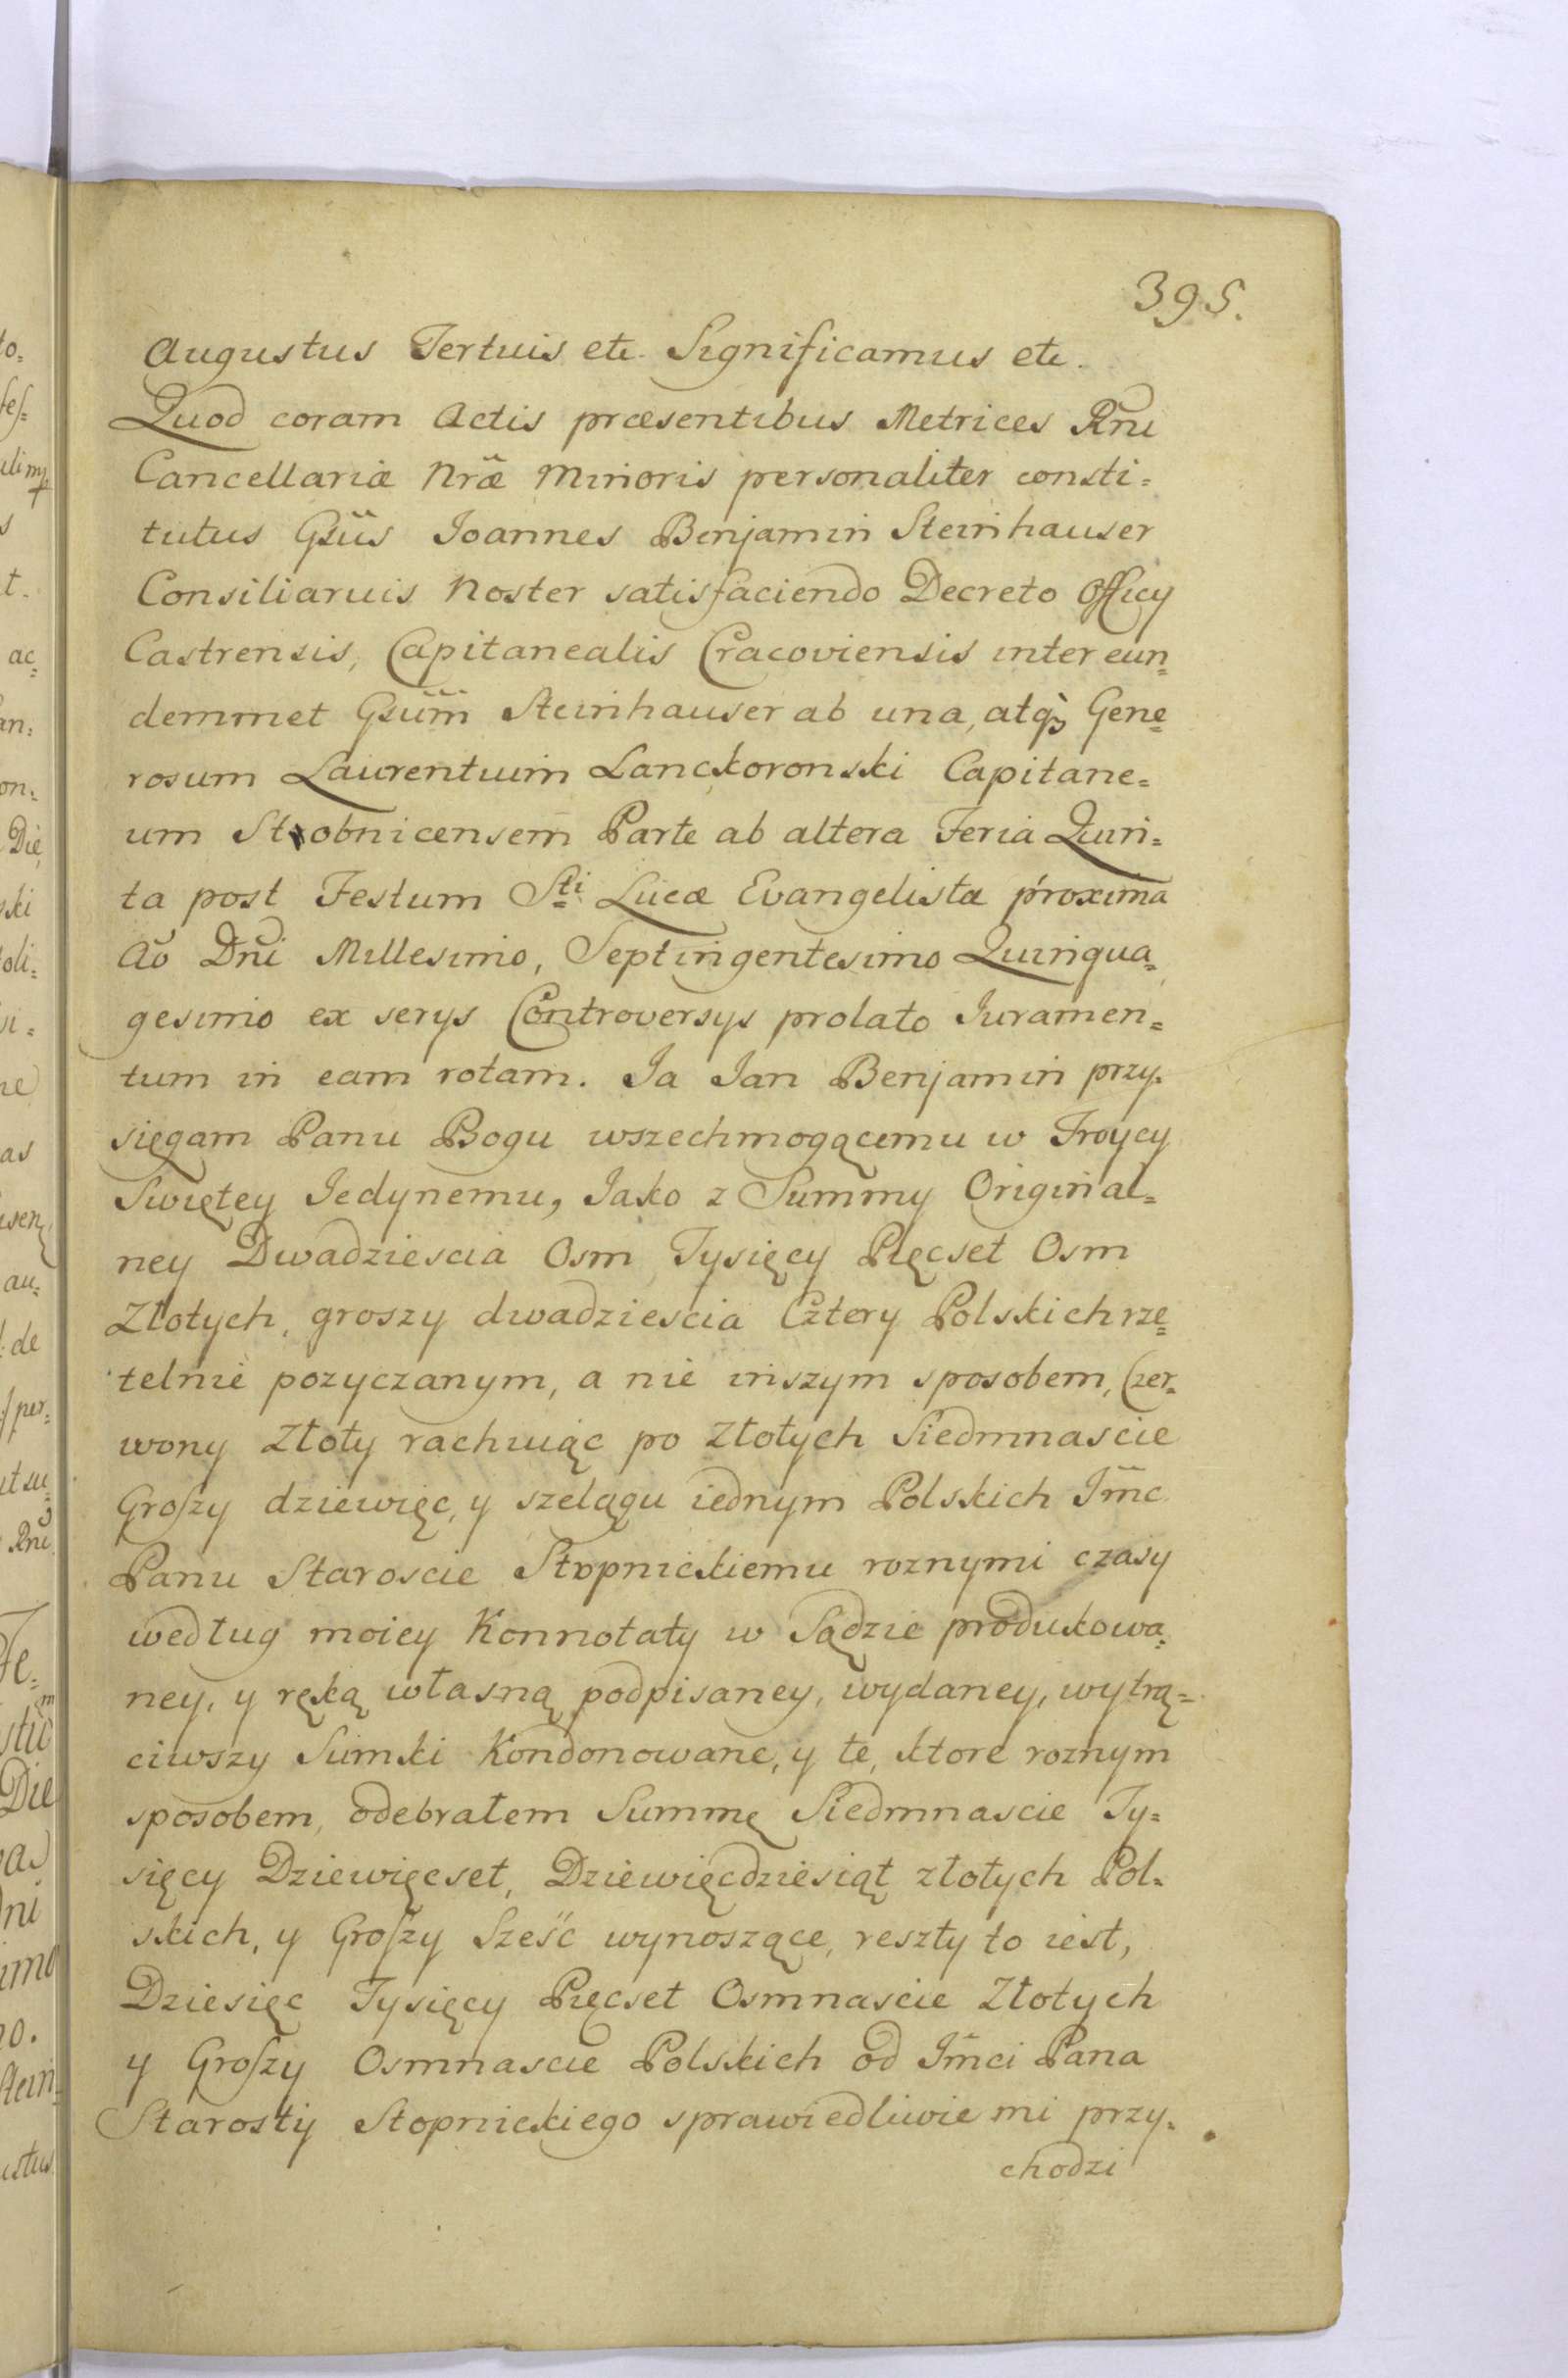 395.
Augustus Tertius etc. Significamus etc.
Quod coram Actis præsentibus Metrices Rñi
Cancellariæ Nræ Minoris personaliter consti=
tutus Gsus Joannes Benjamin Steinhauser
Consiliarius Noster satisfaciendo Decreto Officy
Castrensis, Capitanealis Cracoviensis inter eun=
demmet Gsum Steinhauser ab una, atq3 Gene=
rosum Laurentium Lanckoronski Capitane=
um Stobnicensem Parte ab altera Feria Quin=
ta post Festum Sti Lucæ Evangelistæ proxima
Aõ Dñi Millesimo, Septingentesimo Quinqua=
gesimo ex serys Controversys prolato Juramen=
tum in eam rotam. Ja Jan Benjamin przy=
sięgam Panu Bogu wszechmogącemu w Troycy
Swiętey Jedynemu, Jako z Summy Original=
ney Dwadziescia Osm Tysięcy Pięcset Osm
Złotych, groszy dwadziescia Cztery Polskich rze=
telnie pozyczanym, a nie inszym sposobem, Czer=
wony Złoty rachuiąc po Złotych Siedmnascie
Groszy dziewięc, y szelągu iednym Polskich Jmc
Panu Staroscie Stopnickiemu roznymi czasy
według moiey Konnotaty w Sądzie produkowa=
ney, y ręką własną podpisaney, wydaney, wytrą=
ciwszy Sumki Kondonowane, y te, ktore roznym
sposobem, odebrałem Summę Siedmnascie Ty=
sięcy Dziewięcset, Dziewięcdziesiąt złotych Pol=
skich, y Groszy Sześć wynoszące, reszty to iest,
Dziesięc Tysięcy Pięcset Osmnascie Złotych
y Groszy Osmnascie Polskich od Jmci Pana
Starosty Stopnickiego sprawiedliwie mi przy=
chodzi